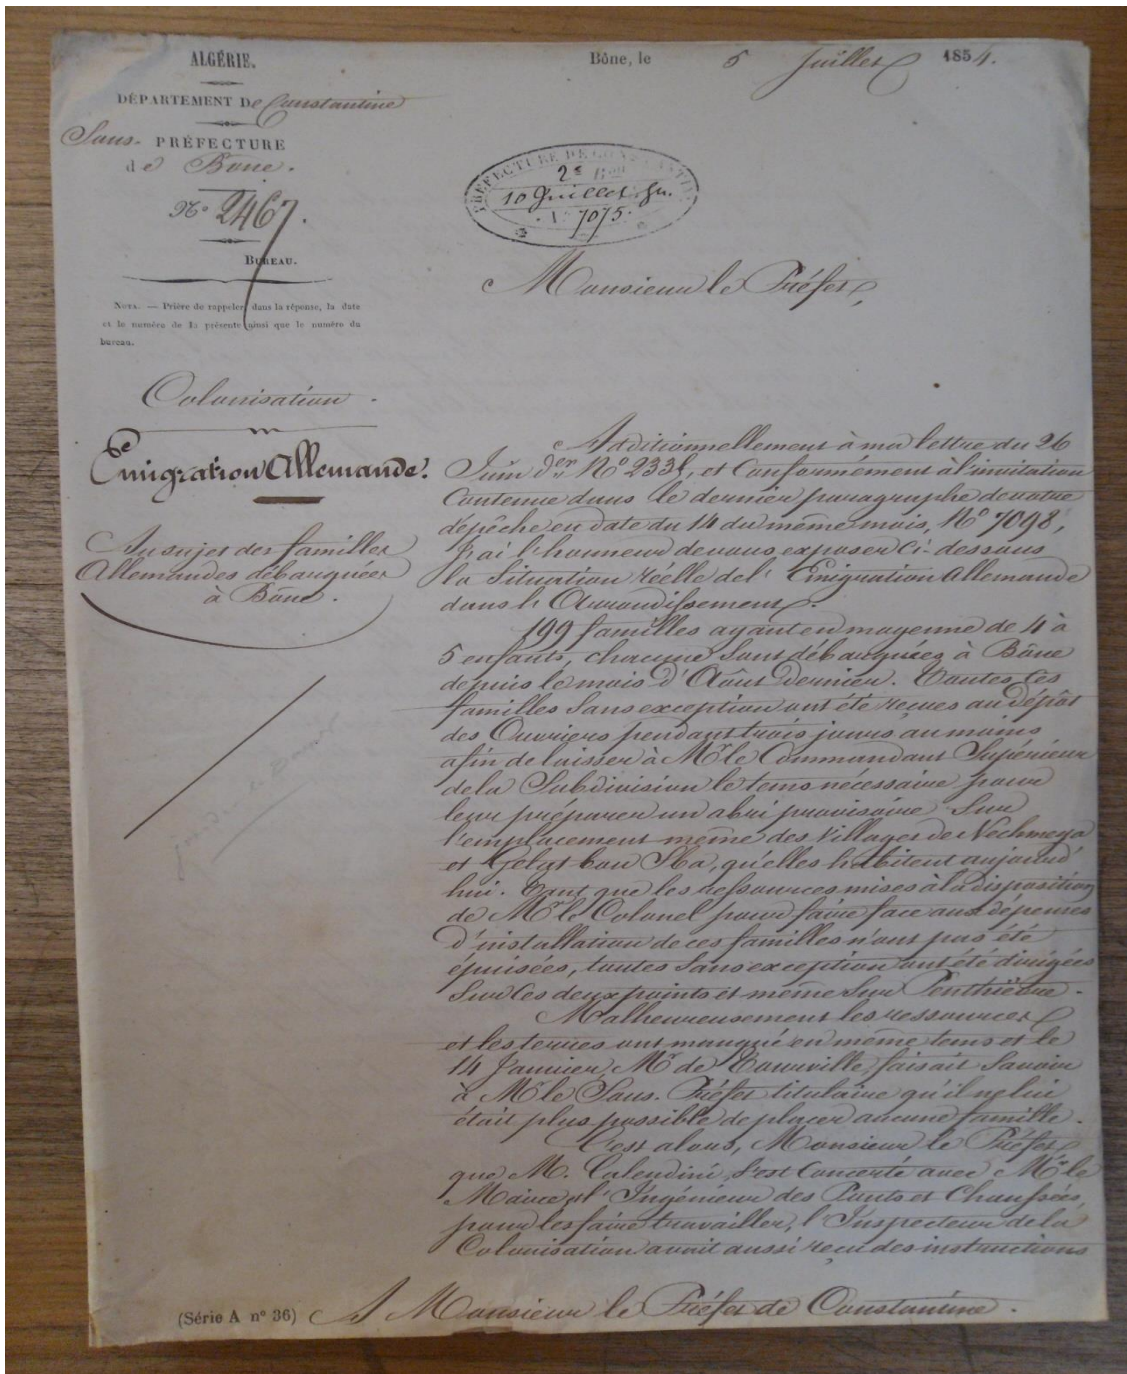 ALGÉRIE.
DÉPARTEMENT De Constantine
Sous-PRÉFECTURE
de Bône.
N° 2467.
BUREAU.
NOTA. — Prière de rappeler dans la réponse, la date
et le numéro de la présente ainsi que le numéro du
bureau.
Bône, le 5 Juillet 1854.
PRÉFECTURE DE CONSTANTINE
2e Bau
10 Juillet
N° 7075.
Monsieur le Préfet,
Colonisation.
Emigration Allemande.
Au sujet des familles
Allemandes débarquées
à Bône.
Additionnellement à ma lettre du 26
Juin der N° 2331, et Conformément à l'invitation
Contenue dans le dernier paragraphe de votre
dépêche en date du 14 du même mois, N° 7098,
J'ai l'honneur de vous exposer Ci-dessous
la Situation réelle de l'Emigration Allemande
dans l'Arrondissement.
199 familles ayant en moyenne de 4 à
5 enfants, chacune Sont débarquées à Bône
depuis le mois d'Aout dernier. Toutes ces
familles Sans exception ont été reçues au dépôt
des Ouvriers pendant trois jours au moins
afin de laisser à Mr le Commandant Supérieur
de la Subdivision le tems nécessaire pour
leur préparer un abri provisoire Sur
l'emplacement même des Villages de Nechmeya
et Gelat bou Sba, qu'elles habitent aujourd'
hui. Tant que les ressources mises à la disposition
de Mr le Colonel pour faire face aux dépenses
d'installation de ces familles n'ont pas été
épuisées, toutes Sans exception ont été dirigées
Sur Ces deux points et même Sur Penthièvre.
Malheureusement les ressources
et les terres ont manqué en même tems et le
14 Janvier, Mr de Tourville faisait Savoir
à Mr le Sous-Préfet titulaire qu'il ne lui
était plus possible de placer aucune famille.
C'est alors, Monsieur le Préfet
que M. Calendini, S'est Concerté avec Mr le
Maire et l'Ingénieur des Ponts et Chaussées,
pour les faire travailler, l'Inspecteur de la
Colonisation avait aussi reçu des instructions
(Série A n° 36) A Monsieur le Préfet de Constantine.